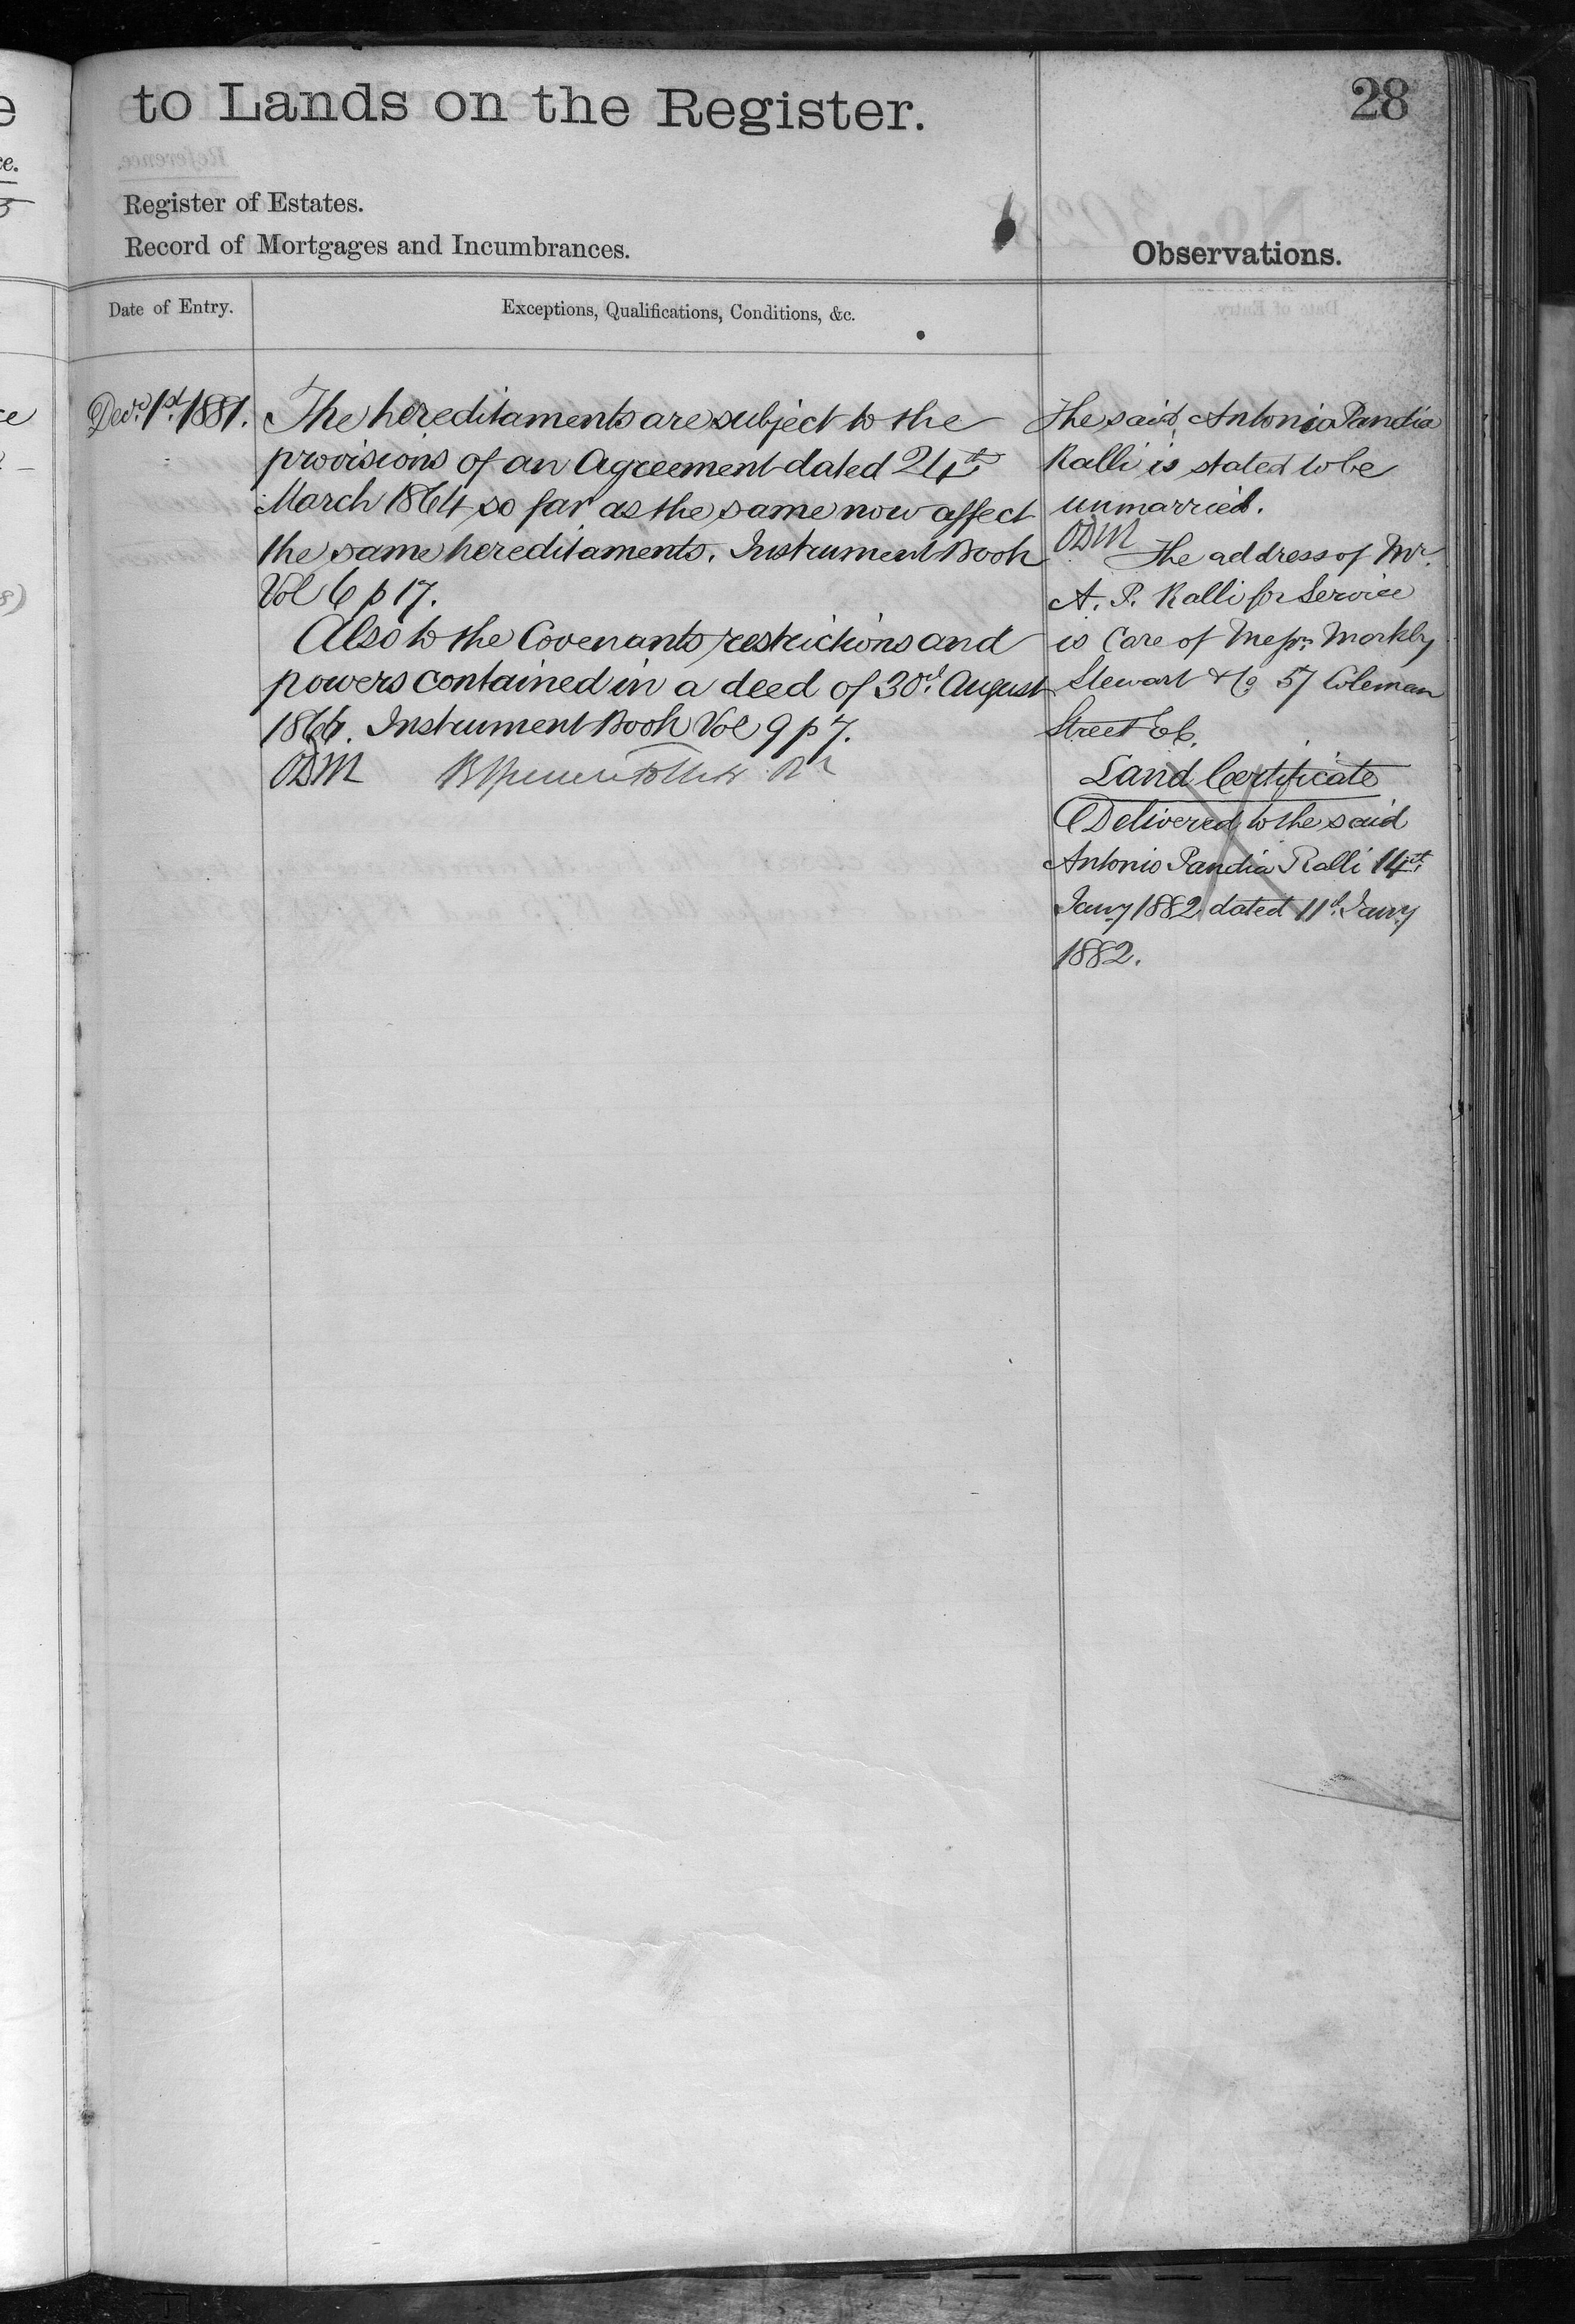 to Lands on the Register.
28
Register of Estates.
Record of Mortgages and Incumbrances.
Observations.
Date of Entry.
Exceptions, Qualifications, Conditions, &c.
Decr. 1st. 1881.
The hereditaments are subject to the
provisions of an Agreement dated 24th
March 1864 so far as the same now affect
the same hereditaments. Instrument Book
Vol 6 p 17.
Also to the Covenants restrictions and
powers contained in a deed of 30d. August
1866. Instrument Book Vol 9 p 7.
ODM
The said Antonio Pandia
Ralli is stated to be
unmarried.
ODM
The address of Mr.
A. P. Ralli for Service
is Care of Messrs. Markby
Stewart & Co 57 Coleman
Street EC.
Land Certificate
Delivered to the said
Antonio Pandia Ralli 14st.
Jany 1882 dated 11d. Jany
1882.